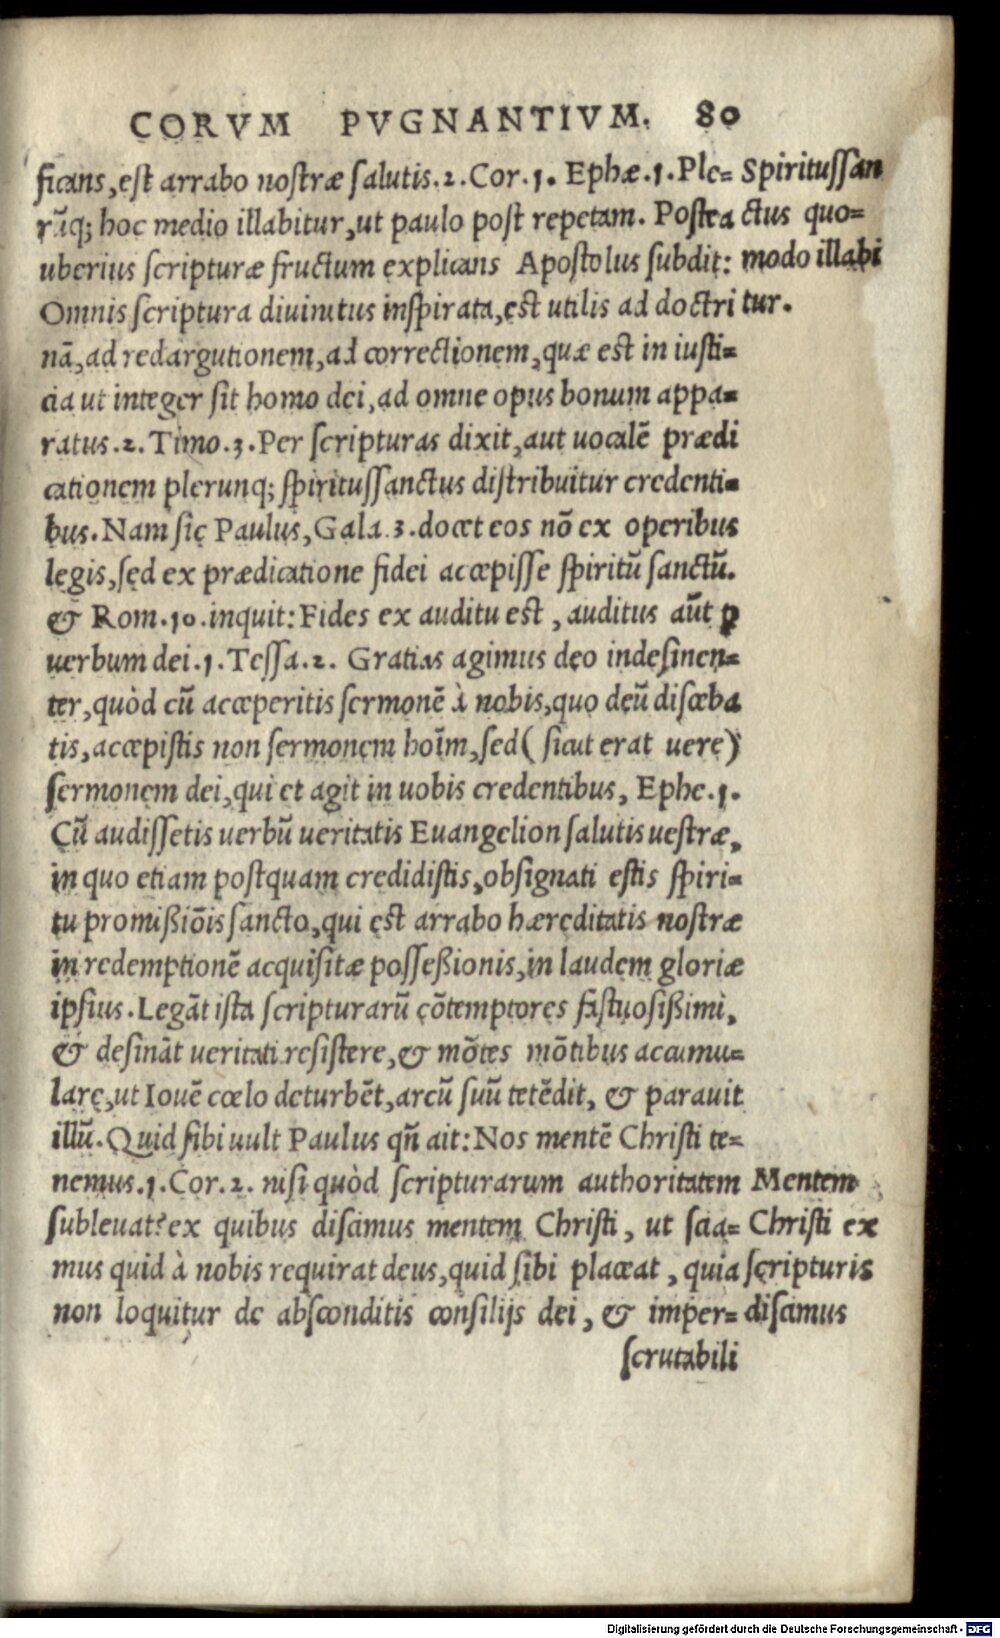 CORVM PVGNANTIVM. 80
ficans, est arrabo nostræ salutis. 2. Cor. 1. Ephæ. 1. Ple=
rũq; hoc medio illabitur, ut paulo post repetam. Postea
uberius scripturæ fructum explicans Apostolus subdit:
Omnis scriptura divinitus inspirata, est utilis ad doctri
nã, ad redargutionem, ad correctionem, quæ est in iusti=
cia ut integer sit homo dei, ad omne opus bonum appa=
ratus. 2. Timo. 3. Per scripturas dixit, aut uocalẽ prædi
cationem plerunq; spiritussanctus distribuitur credenti=
bus. Nam sic Paulus, Gala. 3. docet eos nõ ex operibus
legis, sed ex prædicatione fidei accepisse spiritũ sanctũ.
& Rom. 10. inquit: Fides ex auditu est, auditus aũt ꝑ
uerbum dei. 1. Tessa. 2. Gratias agimus deo indesinen=
ter, quòd cũ acceperitis sermonẽ à nobis, quo deũ disceba
tis, accepistis non sermonem hoĩm, sed (sicut erat uere)
sermonem dei, qui et agit in uobis credentibus, Ephe. 1.
Cũ audissetis uerbũ ueritatis Euangelion salutis uestræ,
in quo etiam postquam credidistis, obsignati estis spiri=
tu promißiõis sancto, qui est arrabo hæreditatis nostræ
in redemptionẽ acquisitæ posseßionis, in laudem gloriæ
ipsius. Legãt ista scripturarũ cõtemptores fastuosißimi,
& desinãt ueritati resistere, & mõtes mõtibus accumu=
lare, ut Iouẽ cœlo deturbẽt, arcũ suũ tetẽdit, & parauit
illũ. Quid sibi uult Paulus qñ ait: Nos mentẽ Christi te=
nemus. 1. Cor. 2. nisi quòd scripturarum authoritatem
subleuat? ex quibus discamus mentem Christi, ut scia=
mus quid à nobis requirat deus, quid sibi placeat, quia
non loquitur de absconditis consilijs dei, & imper=
scrutabili
Spiritussan
ctus quo=
modo illabi
tur.
Mentem
Christi ex
scripturis
discamus
Digitalisierung gefördert durch die Deutsche Forschungsgemeinschaft - DFG